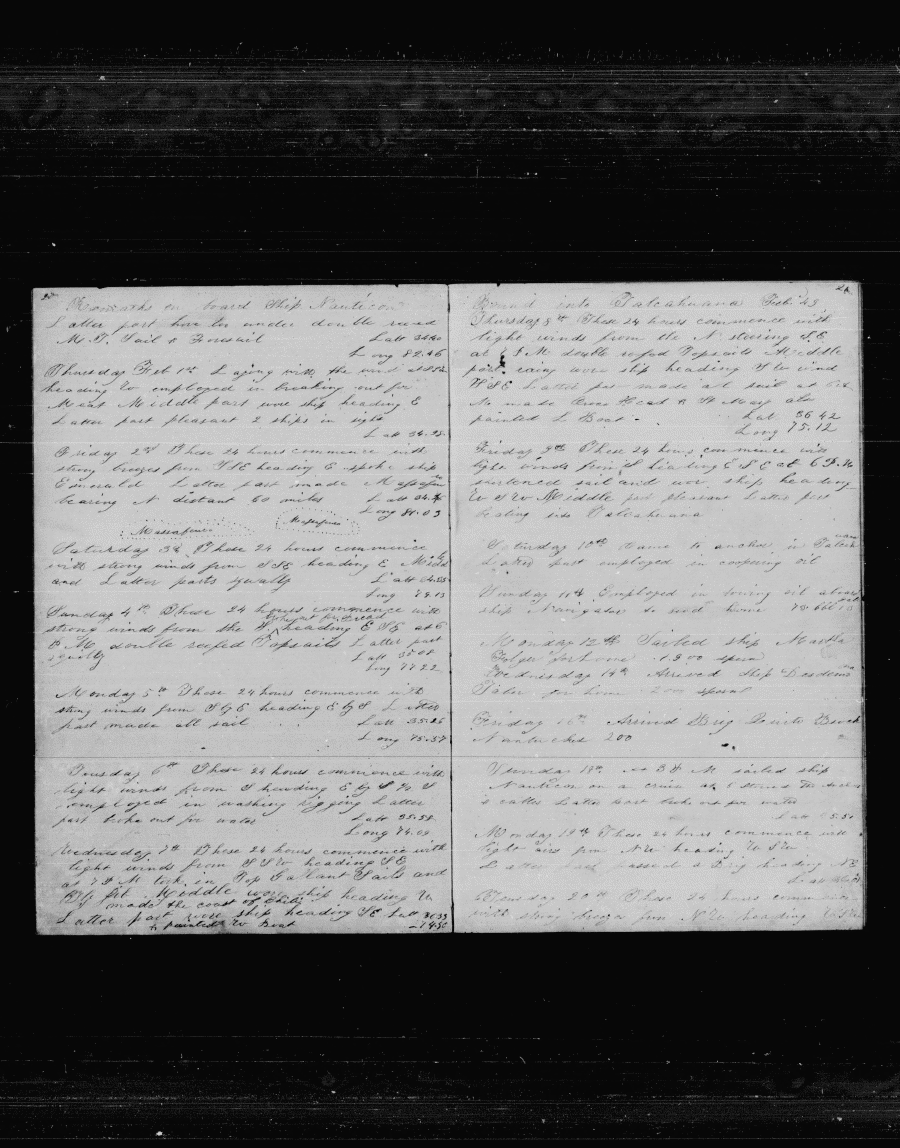 20
Remarks on board Ship Nauticon
Latter part under double reed
M. T. Sail & Foresail Latt 34.40
Long 82.46
Thursday Feb 1st Laying with the wind at SSE
heading W employed in breaking out for
Meat Middle part wore ship heading E
Latter part pleasant 2 ships in sight
Latt 34.25
Friday 2nd These 24 hours commence with
strong breezes from SSE heading E spoke ship
Emerald Latter part made Massafuero
bearing N distant 60 miles Latt 34.
Long 81.03
Massafuero Massafuero
Saturday 3d These 24 hours commence
with strong winds from SSE heading E Midd
and Latter parts squally Latt 34.55
Long 79.13
Sunday 4th These 24 hours commence with
broke out for Bread
strong winds from the S heading ESE at 6
P M double reefed Topsails Latter part
squally Latt 35.08
Long 77.22
Monday 5th These 24 hours commence with
strong winds from S by E heading E by S Latter
part made all sail Latt 35.26
Long 75.37
Tuesday 6th These 24 hours commence with
light winds from S heading E by S ½ S
employed in washing rigging Latter
part broke out for water Latt 35.58
Long 74.09
Wednesday 7th These 24 hours commence with
light winds from SSW heading SE
at 7 P M took in Top Gallant Sails and
Fly Jib Middle wore ship heading W
made the coast of Chili
Latter part wore ship heading SE Latt 36.33
& painted W Boat 74.50
21
Bound into Talcahuana Feb 49
Thursday 8th These 24 hours commence with
light winds from the N steering SE
at P.M. double reefed Topsails Middle
part rainy wore ship heading SW wind
WSE Latter part made all sail at
No made Head & St Mary also
painted L Boat Lat 36 42
Long 75.12
Friday 9th These 24 hours commence with
light winds from S heading ESE at 6 P.M
shortened sail and wore ship heading
W SW Middle part pleasant Latter part
beating into Talcahuana
Saturday 10th came to anchor in Talcahuana
Latter part employed in coopering oil
Sunday 11th Employed in towing oil aboard
ship Navigator to send home 78 bbl
Monday 12th Sailed ship Martha
for home 1300 sperm
Wednesday 14th Arrived Ship Desdemona
Taber for home 200 sperm
Friday 16th Arrived Brig
Nantucket 200
Sunday 18th at 3 P M sailed ship
Nauticon on a cruise at 6 steered
Latter part broke out for water
Monday 19th These 24 hours commence with
light airs from NW heading W SW
Latter part passed a Brig heading NE
Tuesday 20th These 24 hours commence
with strong breezes from NW heading WSW